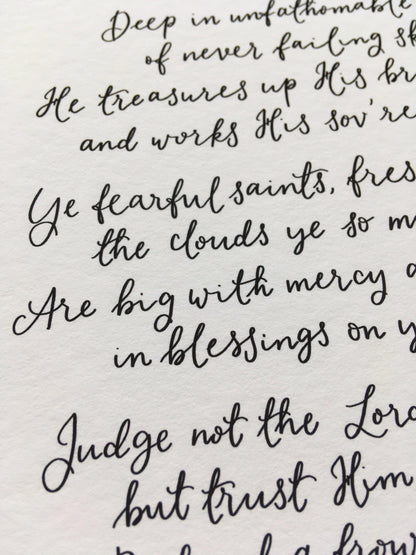 Deep in unfathomable
of never failing sk
He treasures up His br
and works His sov're
Ye fearful saints, fres
the clouds ye so m
Are big with mercy a
in blessings on y
Judge not the Lord
but trust Him